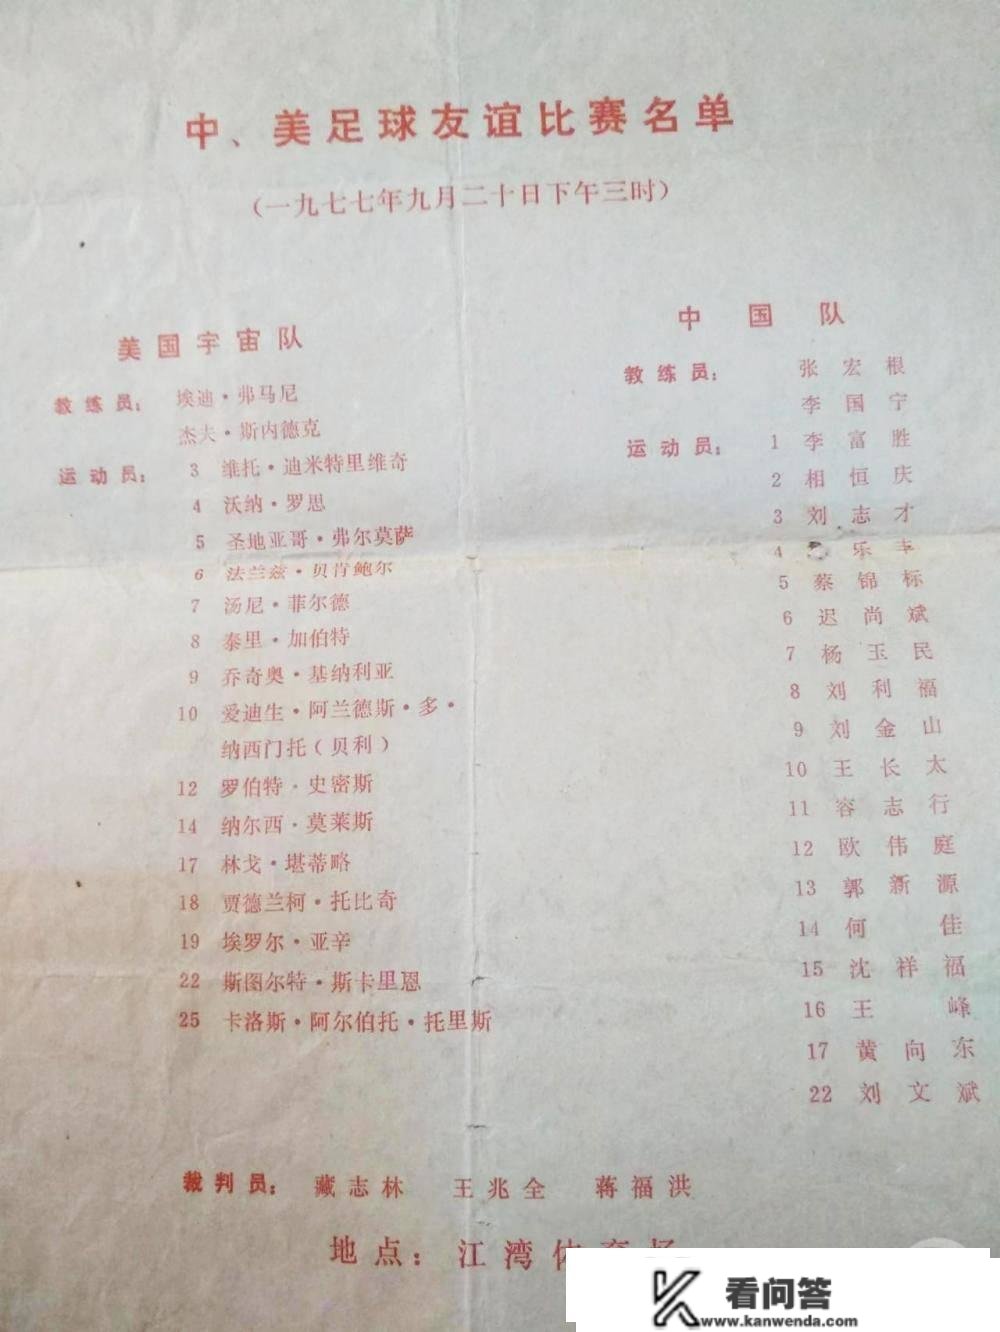 中、美足球友谊比赛名单
（一九七七年九月二十日下午三时）
美国宇宙队
教练员：埃迪·弗马尼
杰夫·斯内德克
运动员：3 维托·迪米特里维奇
4 沃纳·罗思
5 圣地亚哥·弗尔莫萨
6 法兰兹·贝肯鲍尔
7 汤尼·菲尔德
8 泰里·加伯特
9 乔奇奥·基纳利亚
10 爱迪生·阿兰德斯·多·
纳西门托（贝利）
12 罗伯特·史密斯
14 纳尔西·莫莱斯
17 林戈·堪蒂略
18 贾德兰柯·托比奇
19 埃罗尔·亚辛
22 斯图尔特·斯卡里恩
25 卡洛斯·阿尔伯托·托里斯
中国队
教练员：张宏根
李国宁
运动员：1 李富胜
2 相恒庆
3 刘志才
4 乐丰
5 蔡锦标
6 迟尚斌
7 杨玉民
8 刘利福
9 刘金山
10 王长太
11 容志行
12 欧伟庭
13 郭新源
14 何佳
15 沈祥福
16 王峰
17 黄向东
22 刘文斌
裁判员：藏志林 王兆全 蒋福洪
地点：江湾体育场
看问答
www.kanwenda.com